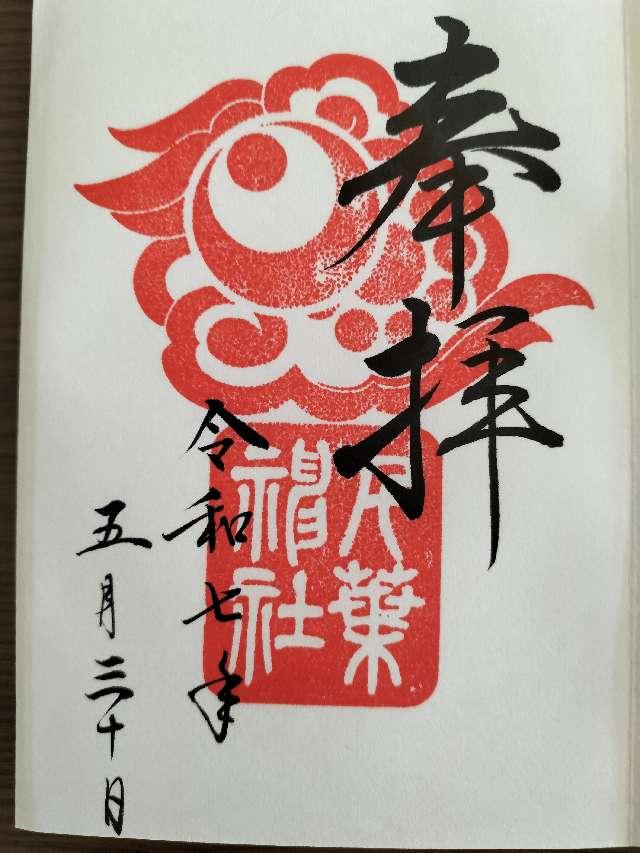 奉拝
葉
神社
令和七年
五月三十日